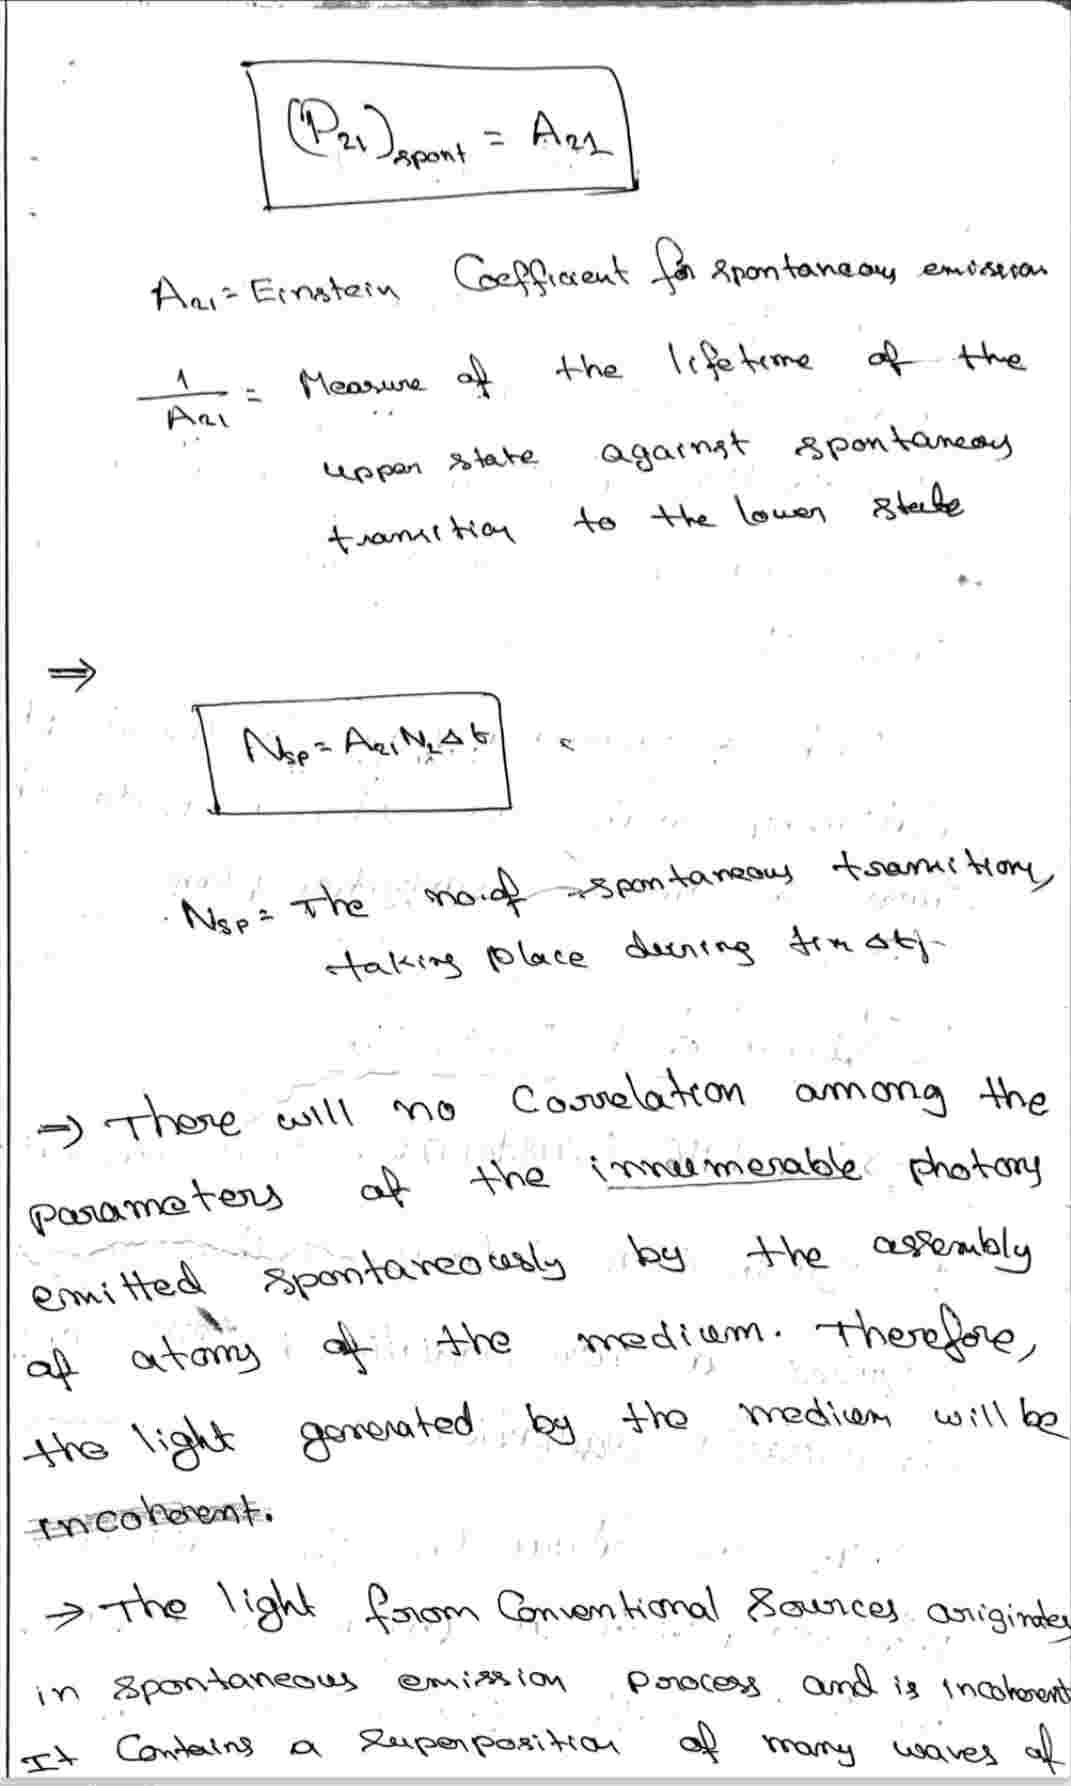 (P₂₁)spont = A₂₁
A₂₁ = Einstein Coefficient for spontaneous emission
1/A₂₁ = Measure of the lifetime of the
upper state against spontaneous
transition to the lower state
⇒
Nsp = A₂₁N₂Δt
Nsp = The no. of spontaneous transitions
taking place during Δt
⇒ There will no Correlation among the
parameters of the innumerable photons
emitted spontaneously by the assembly
of atoms of the medium. Therefore,
the light generated by the medium will be
incoherent.
→ The light from Conventional Sources originates
in spontaneous emission process and is incoherent
It Contains a Superposition of many waves of